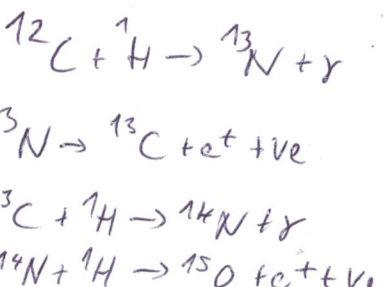 ¹²C + ¹H → ¹³N + γ
³N → ¹³C + e⁺ + νe
³C + ¹H → ¹⁴N + γ
¹⁴N + ¹H → ¹⁵O + e⁺ + ν